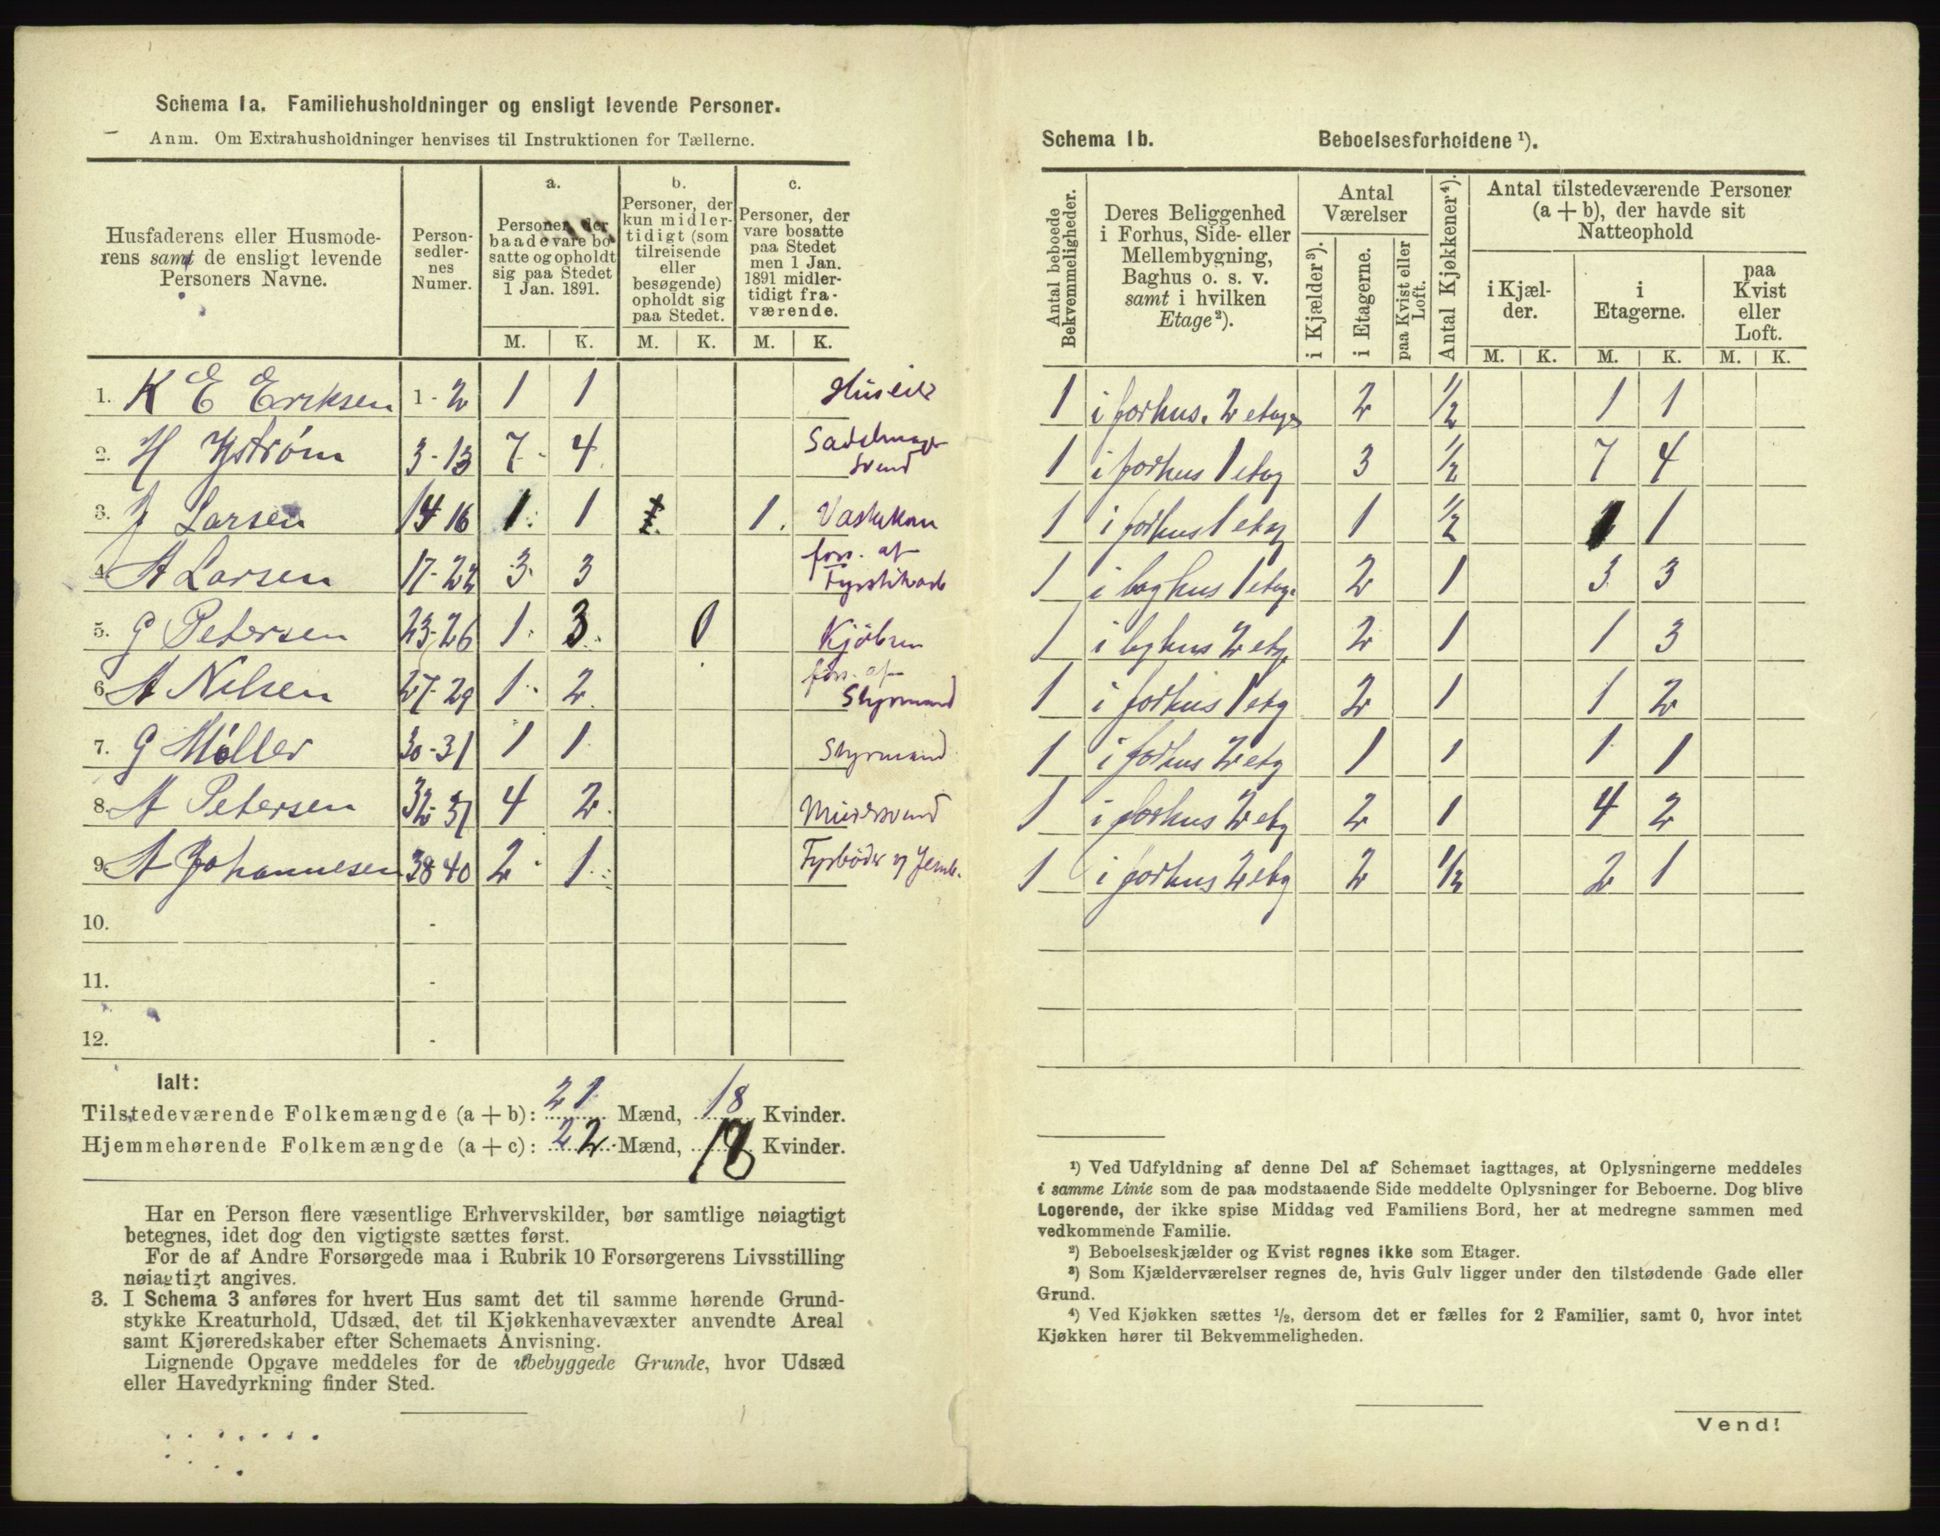 Schema 1a. Familiehusholdninger og ensligt levende Personer.
Anm. Om Extrahusholdninger henvises til Instruktionen for Tællerne.
Husfaderens eller Husmoderens samt de ensligt levende Personers Navne.
Personsedlernes Numer.
a. Personer, der baade vare bosatte og opholdt sig paa Stedet 1 Jan. 1891.
b. Personer, der kun midlertidigt (som tilreisende eller besøgende) opholdt sig paa Stedet.
c. Personer, der vare bosatte paa Stedet men 1 Jan. 1891 midlertidigt fraværende.
M. K. M. K. M. K.
1. K E Eriksen 1-2 1 1 Huseier
2. H Ystrøm 3-13 7 4 Sadelmager svend
3. J Larsen 14-16 1 1 1. Vaskekon
4. A Larsen 17-22 3 3 fors. af Fyrstikarb
5. G Petersen 23-26 1 3 0 Kjøbm
6. A Nilsen 27-29 1 2 fors. af Styrmand
7. G Møller 30-31 1 1 Styrmand
8. A Petersen 32-37 4 2 Murersvend
9. A Johannesen 38-40 2 1 Fyrbøder
10. -
11. -
12. -
Ialt:
Tilstedeværende Folkemængde (a + b): 21 Mænd, 18 Kvinder.
Hjemmehørende Folkemængde (a + c): 22 Mænd, 18 Kvinder.
Har en Person flere væsentlige Erhvervskilder, bør samtlige nøiagtigt
betegnes, idet dog den vigtigste sættes først.
For de af Andre Forsørgede maa i Rubrik 10 Forsørgerens Livsstilling
nøiagtigt angives.
3. I Schema 3 anføres for hvert Hus samt det til samme hørende Grund-
stykke Kreaturhold, Udsæd, det til Kjøkkenhavevæxter anvendte Areal
samt Kjøreredskaber efter Schemaets Anvisning.
Lignende Opgave meddeles for de ubebyggede Grunde, hvor Udsæd
eller Havedyrkning finder Sted.
Schema 1b. Beboelsesforholdene ¹).
Antal beboede Bekvemmeligheder.
Deres Beliggenhed i Forhus, Side- eller Mellembygning, Baghus o. s. v. samt i hvilken Etage²).
Antal Værelser
i Kjælder³).
i Etagerne.
paa Kvist eller Loft.
Antal Kjøkkener⁴).
Antal tilstedeværende Personer (a + b), der havde sit Natteophold
i Kjælder.
i Etagerne.
paa Kvist eller Loft.
M. K. M. K. M. K.
1 i forhus. 2 etage 2 1/2 1 1
1 i forhus 1 etag 3 1/2 7 4
1 i forhus 1 etag 1 1/2 1 1
1 i baghus 1 etag. 2 1 3 3
1 i baghus 2 etg. 2 1 1 3
1 i forhus 1 etg 2 1 1 2
1 i forhus 2 etg 1 1 1 1
1 i forhus 2 etg 2 1 4 2
1 i forhus 2 etg 2 1/2 2 1
¹) Ved Udfyldning af denne Del af Schemaet iagttages, at Oplysningerne meddeles
i samme Linie som de paa modstaaende Side meddelte Oplysninger for Beboerne. Dog blive
Logerende, der ikke spise Middag ved Familiens Bord, her at medregne sammen med
vedkommende Familie.
²) Beboelseskjælder og Kvist regnes ikke som Etager.
³) Som Kjælderværelser regnes de, hvis Gulv ligger under den tilstødende Gade eller
Grund.
⁴) Ved Kjøkken sættes ½, dersom det er fælles for 2 Familier, samt 0, hvor intet
Kjøkken hører til Bekvemmeligheden.
Vend!